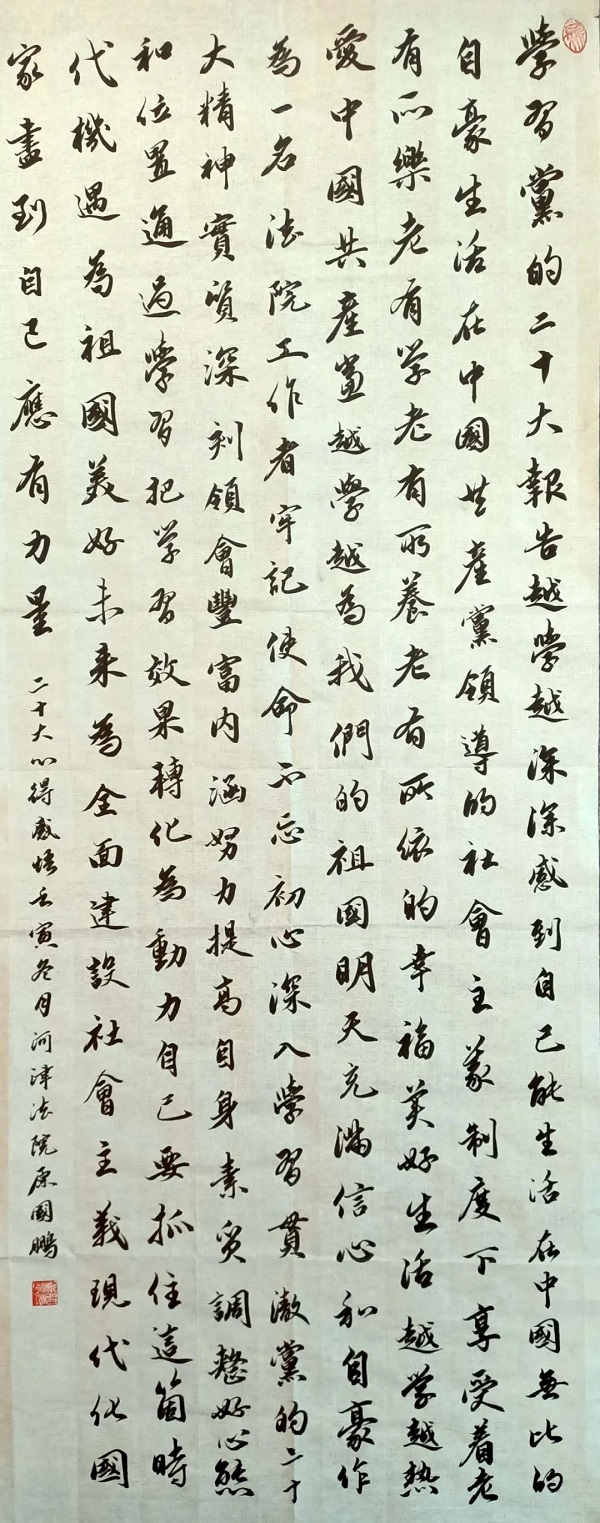 學習黨的二十大報告越學越深深感到自己能生活在中國無比的
自豪生活在中國共產黨領導的社會主義制度下享受着老
有所樂老有学老有所養老有所依的幸福美好生活越学越熱
愛中國共產黨越學越為我們的祖國明天充滿信心和自豪作
為一名法院工作者牢記使命不忘初心深入學習貫澈黨的二十
大精神實質深刻領會豐富內涵努力提高自身素質調整好心態
和位置通過學習把学習效果轉化為動力自己要抓住這箇時
代機遇為祖國美好未来為全面建設社會主義現代化國
家盡到自己應有力量
二十大心得感悟壬寅冬月河津法院原國鵬